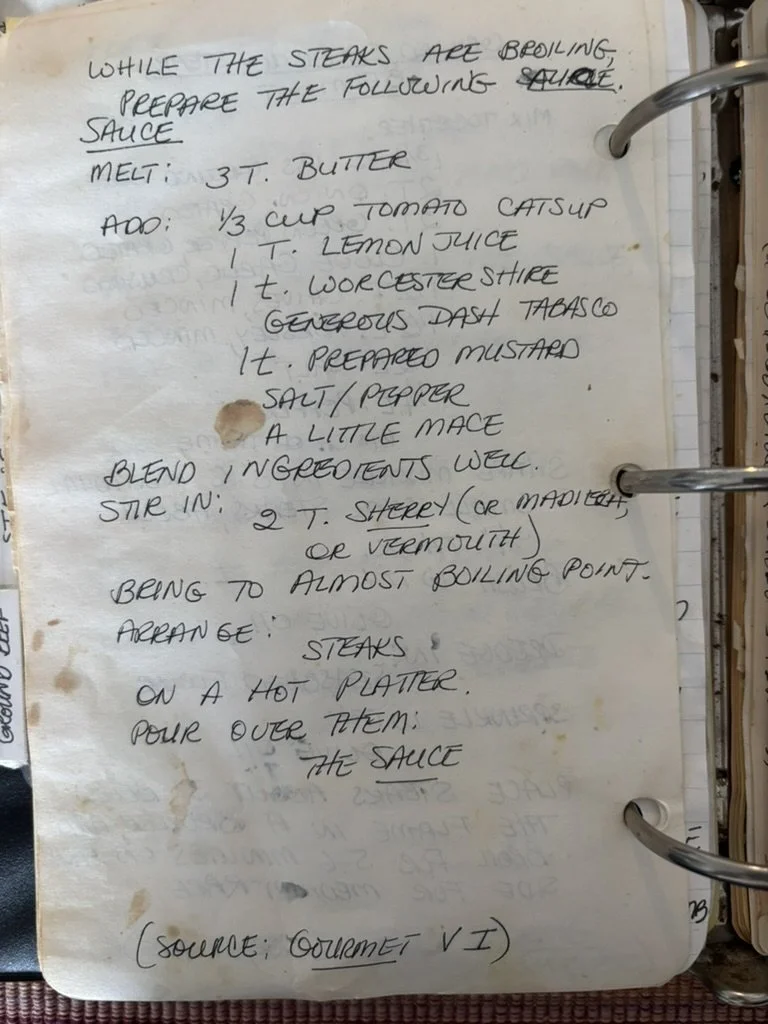 WHILE THE STEAKS ARE BROILING,
PREPARE THE FOLLOWING SAUCE.
SAUCE
MELT: 3 T. BUTTER
ADD: 1/3 CUP TOMATO CATSUP
1 T. LEMON JUICE
1 t. WORCESTERSHIRE
GENEROUS DASH TABASCO
1 t. PREPARED MUSTARD
SALT/PEPPER
A LITTLE MACE
BLEND INGREDIENTS WELL.
STIR IN: 2 T. SHERRY (OR MADIERA,
OR VERMOUTH)
BRING TO ALMOST BOILING POINT.
ARRANGE:
STEAKS
ON A HOT PLATTER.
POUR OVER THEM:
THE SAUCE
(SOURCE: GOURMET VI)
GROUND BEEF